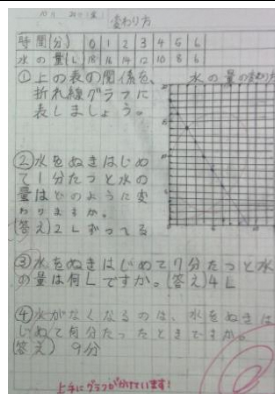 変わり方
時間(分) 0 1 2 3 4 5 6
水の量(L) 18 16 14 12 10 8 6
①上の表の関係を、
折れ線グラフに
表しましょう。
水の量の変わり方
②水をぬきはじめ
て1分たつと水の
量はどのように変
わりますか。
(答え)2Lずつへる
③水をぬきはじめて7分たつと水
の量は何Lですか。(答え)4L
④水がなくなるのは、水をぬきは
じめて何分たったときですか。
(答え) 9分
上手にグラフがかけています!